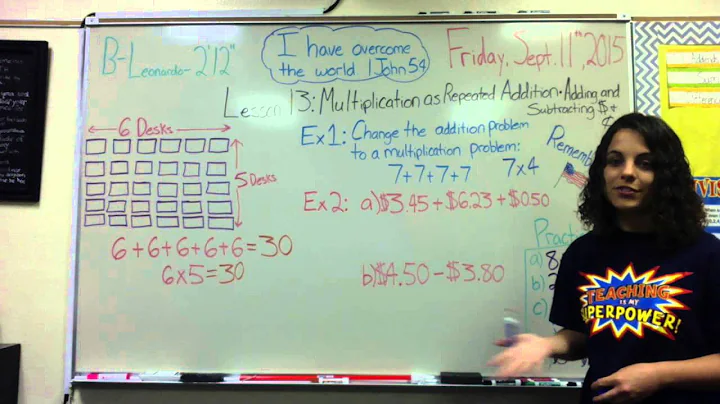 B-Leonardo- 2'12"
I have overcome
the world 1 John 5:4
Friday, Sept. 11th, 2015
Lesson 13: Multiplication as Repeated Addition • Adding and
Subtracting $ +
¢
6 Desks
5 Desks
6+6+6+6+6=30
6x5=30
Ex1: Change the addition problem
to a multiplication problem:
7+7+7+7 7x4
Ex2: a) $3.45 + $6.23 + $0.50
b) $4.50 - $3.80
a) 8
b) 2
c)
TEACHING
IS MY
SUPERPOWER!